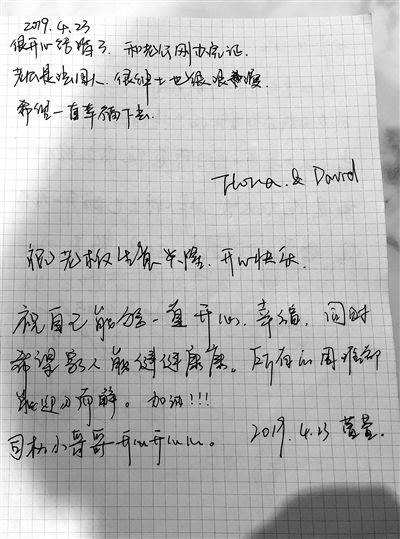 2019.4.23
很开心结婚了. 和老公刚办完证.
老公是法国人. 很绅士也很浪漫.
希望一直幸福下去.
Flora. & David
祝老板生意兴隆. 开心快乐.
祝自己能够一直开心. 幸福. 同时
希望家人能健健康康。所有的困难都
能迎刃而解。加油!!!
司机小哥哥开心开心。
2019.4.23 萱萱.